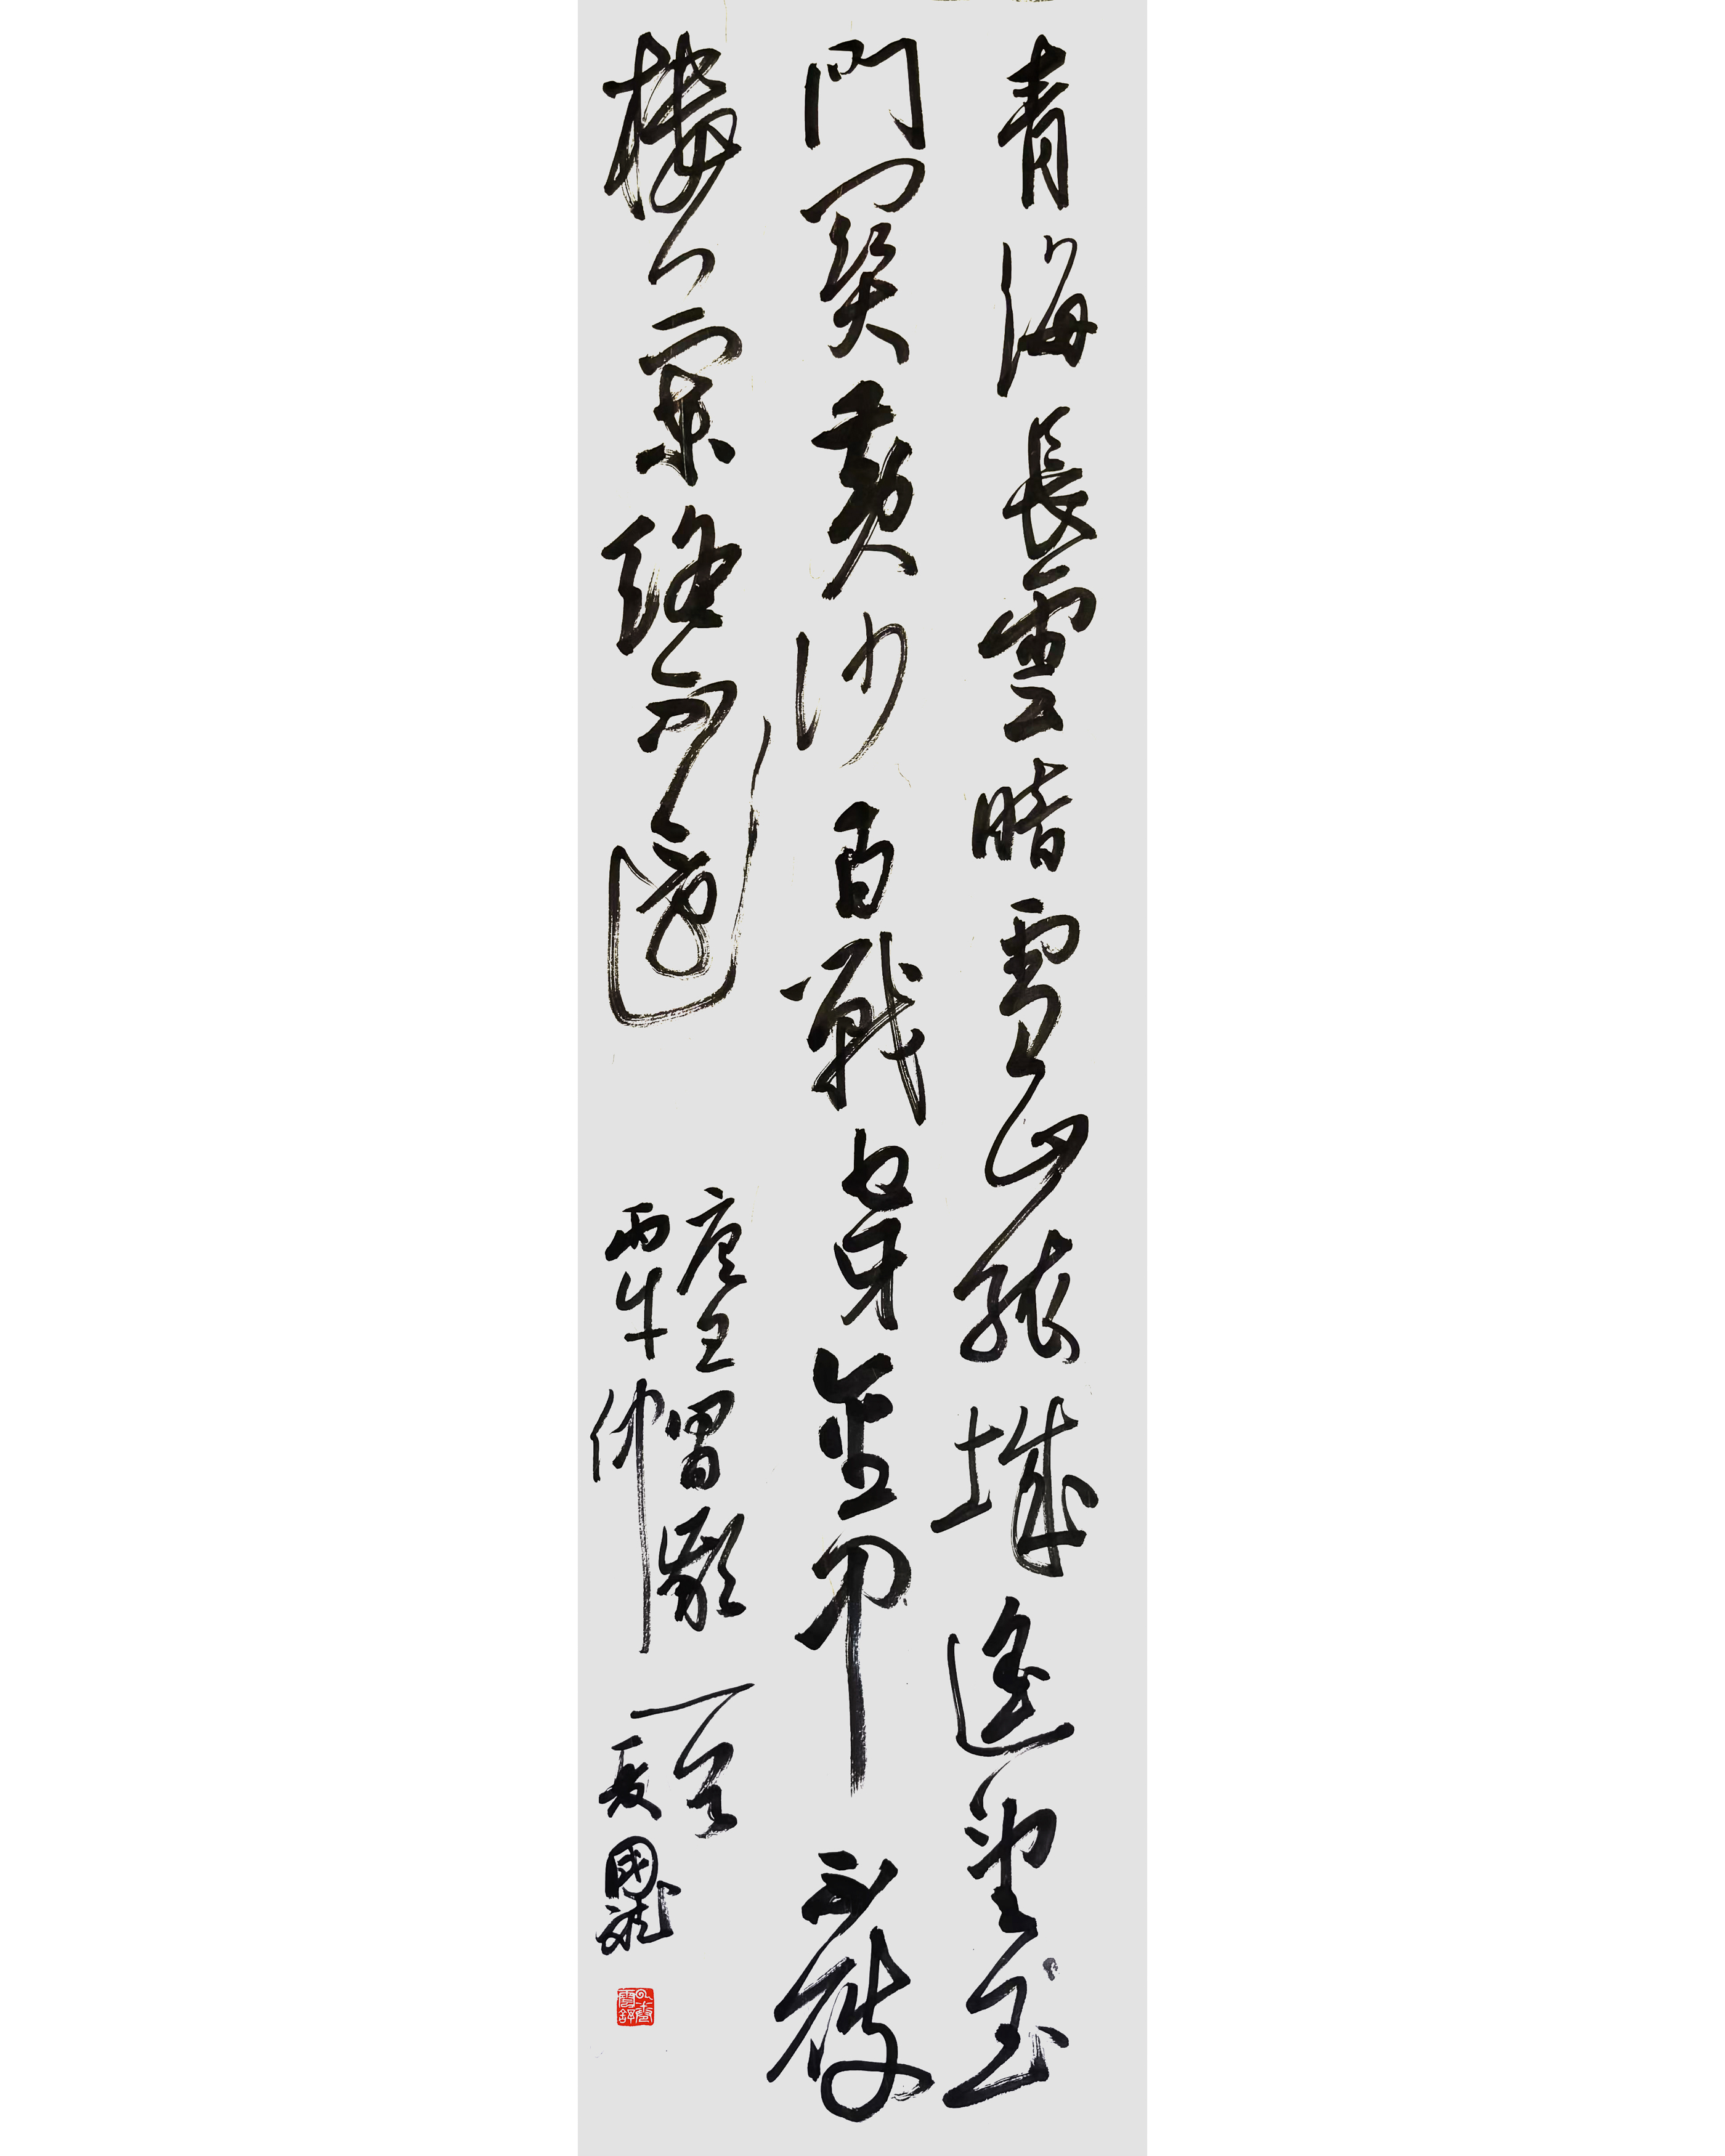 青海長雲暗雪山孤城遙望玉
門關黃沙百戰穿金甲不破
樓蘭終不還
唐王昌齡一首
丙午仲夏國